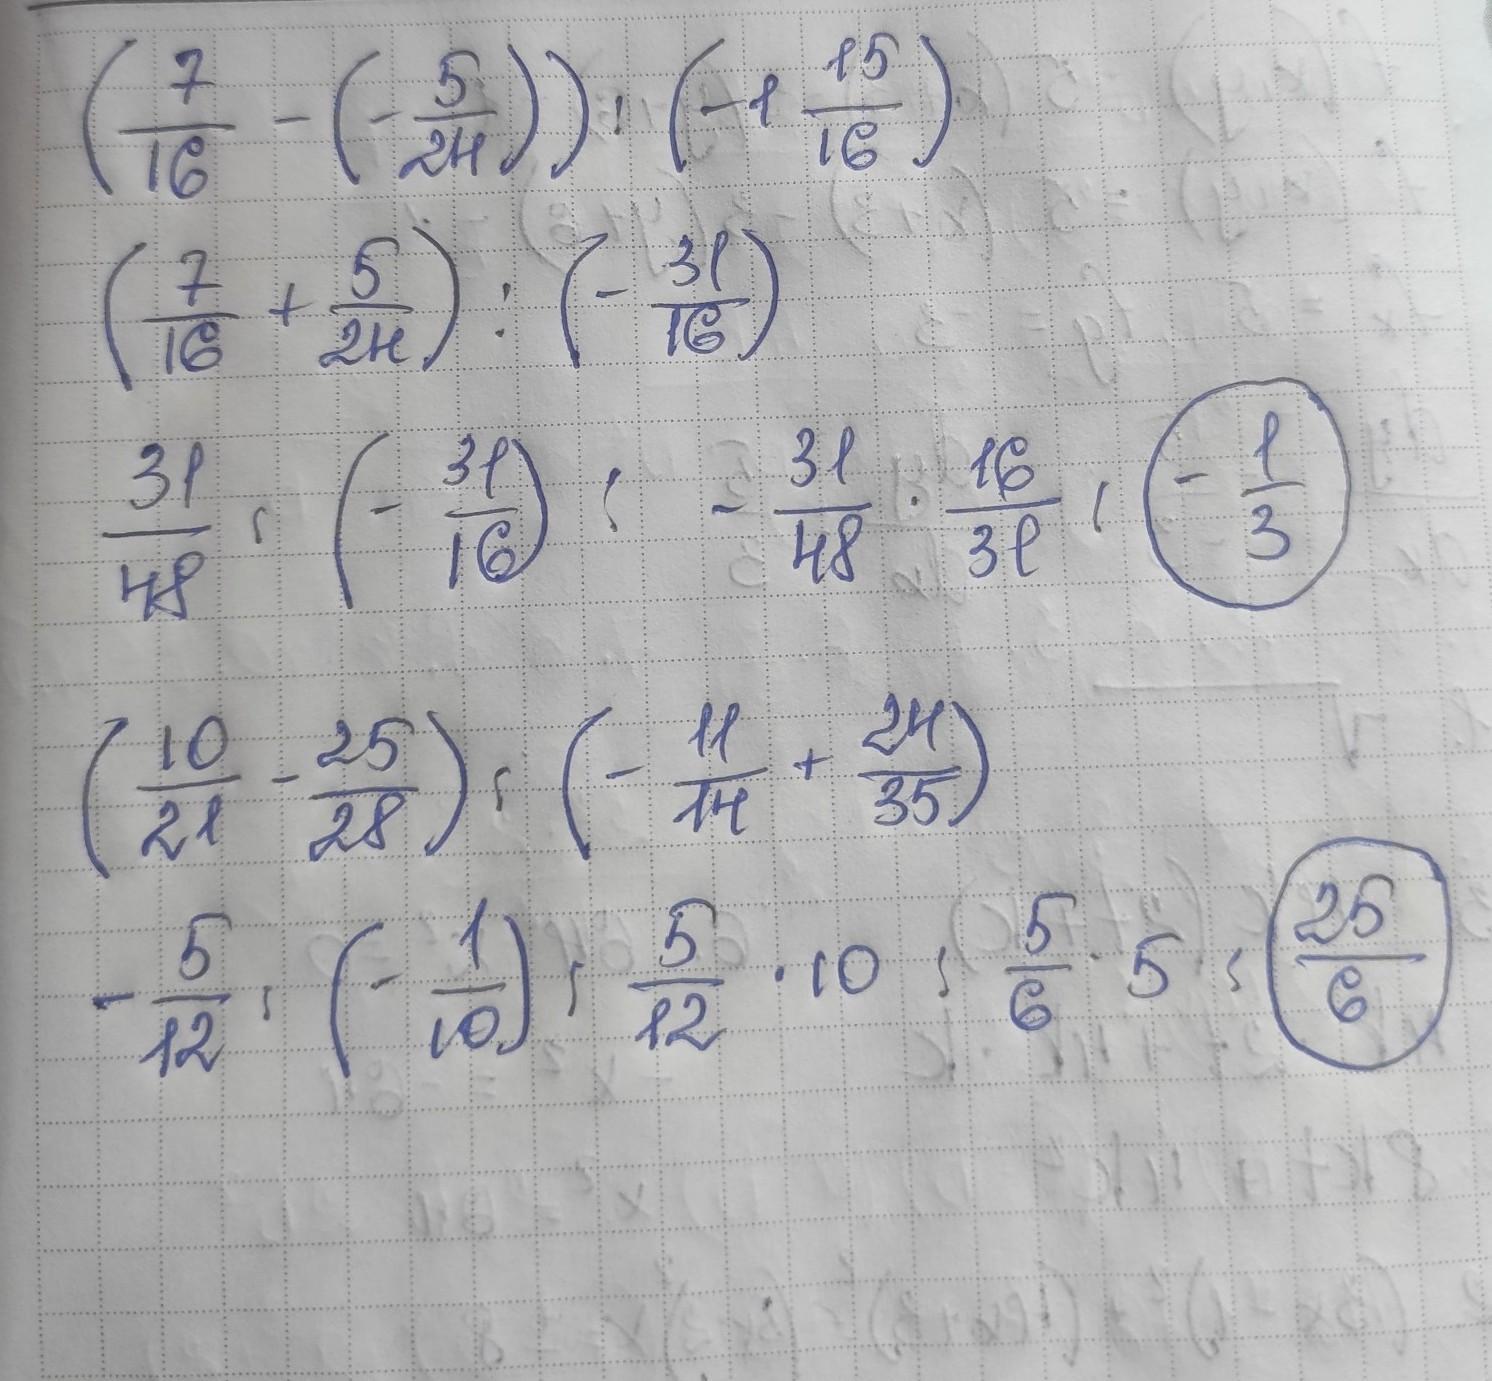 (7/16 - (-5/24)) : (-1 15/16)
(7/16 + 5/24) : (-31/16)
31/48 : (-31/16) ; -31/48 · 16/31 ; -1/3
(10/21 - 25/28) : (-11/14 + 24/35)
-5/12 : (-1/10) ; 5/12 · 10 ; 5/6 · 5 ; 25/6